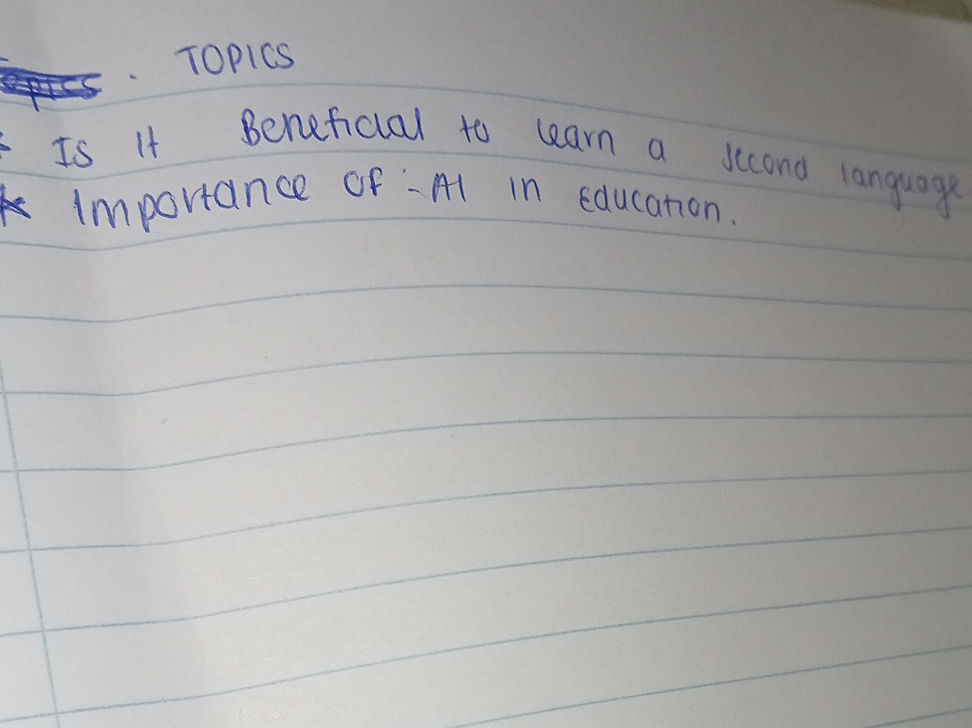 . TOPICS
Is It Beneficial to learn a second language
* Importance of -AI in Education.